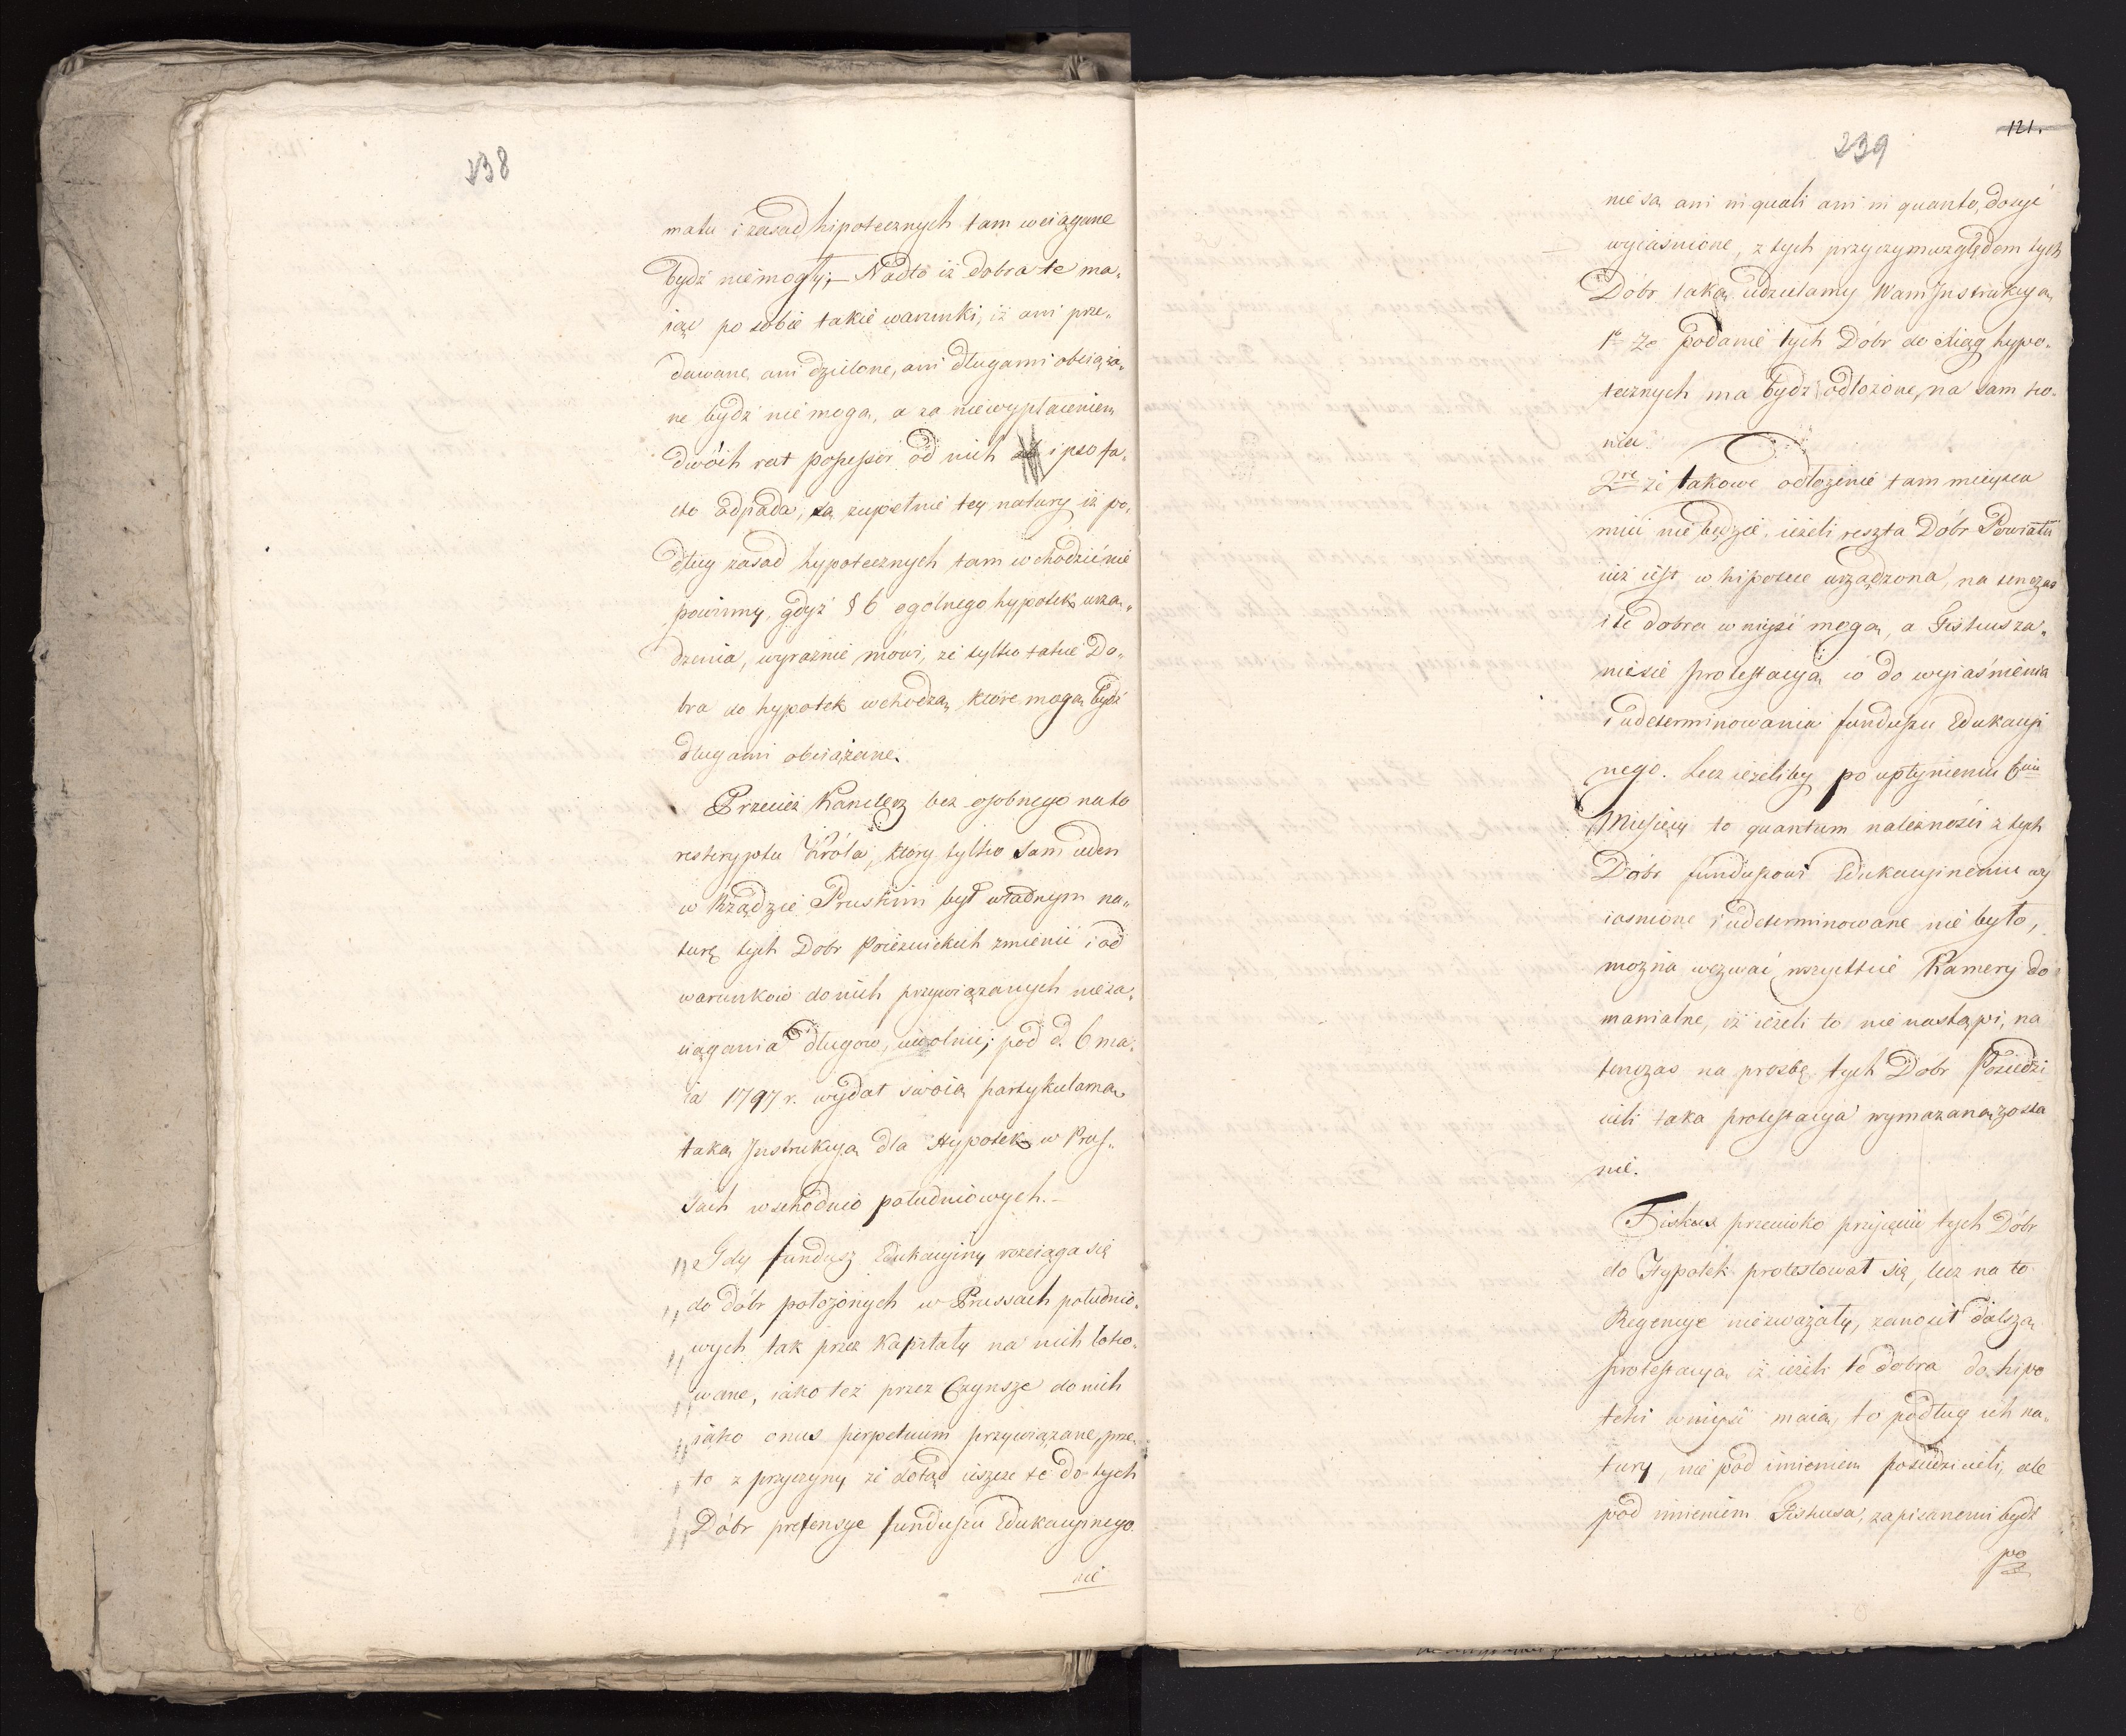 238
matu i zasad hipotecznych tam wciągane
bydź niemogły; — Nadto iż dobra te ma„
iąc po sobie takie warunki, iż ani prze„
dawane, ani dzielone, ani długami obciąża„
ne bydź nie mogą, a za niewypłaceniem
dwóch rat possessor od nich ipso fa„
cto odpada, są zupełnie tey natury iż po„
dług zasad hypotecznych tam wchodzić nie
powinny, gdyż § 6 ogólnego hypotek urzą„
dzenia, wyraźnie mówi, że tylko takie Do„
bra do hypotek wchodzą, które mogą bydź
długami obciążane.
Przecież Kanclerz bez osobnego na to
reskryptu Króla, który tylko sam ieden
w Rządzie Pruskim był władnym na„
turę tych Dobr Poiezuickich zmienić i od
warunków do nich przywiązanych nieza„
ciągania długów, uwolnić; pod d. 6 ma„
ia 1797 r. wydał swoią partykularną
taką Instrukcyą dla Hypotek w Prus„
sach wschodnio południowych. —
„ Gdy fundusz Edukacyiny rozciąga się
„ do dóbr położonych w Prussach południo„
„ wych tak przez Kapitały na nich loko„
„ wane, iako też przez Czynsze do nich
„ iako onus perpetuum przywiązane, prze„
„ to z przyczyny że dotąd ieszcze te do tych
„ Dóbr pretensye funduszu Edukacyinego
nie
121.
239
nie są ani in quali ani in quanto, dosyć
wyiaśnione, z tych przyczym względem tych
Dóbr taką udzielamy Wam Instrukcyą
1o Że podanie tych Dóbr do Xiąg hypo„
tecznych ma bydź odłożone, na sam ko„
niec.
2re że takowe odłożenie tam mieysca
mieć nie będzie, ieżeli reszta Dóbr Powiatu
iuż iest w hipotece urządzona, na tenczas
i te dobra wniyść mogą, a Fiskus za„
niesie protestacyą co do wyiaśnienia
i udeterminowania funduszu Edukacyi
nego. Lecz ieżeliby po upłynieniu 6ciu
Miesięcy to quantum należności z tych
Dóbr funduszowi Edukacyinemu wy
iasnione i udeterminowane nie było,
można wezwać wszystkie Kamery do
manialne, iż ieżeli to nie nastąpi, na
tenczas na prozbę tych Dobr Posiedzi
cieli taka protestacya wymazaną zosta
nie.
Fiskus przeciwko przyięciu tych Dóbr
do Hypotek protestował się, lecz na to
Regencye niezważały, zanosił dalszą
protestacyą iż ieżeli te dobra do hipo
teki wniyść maią, to podług ich na„
tury, nie pod imieniem posiedzicieli, ale
pod imieniem Fiskusa, zapisanemi bydź
po